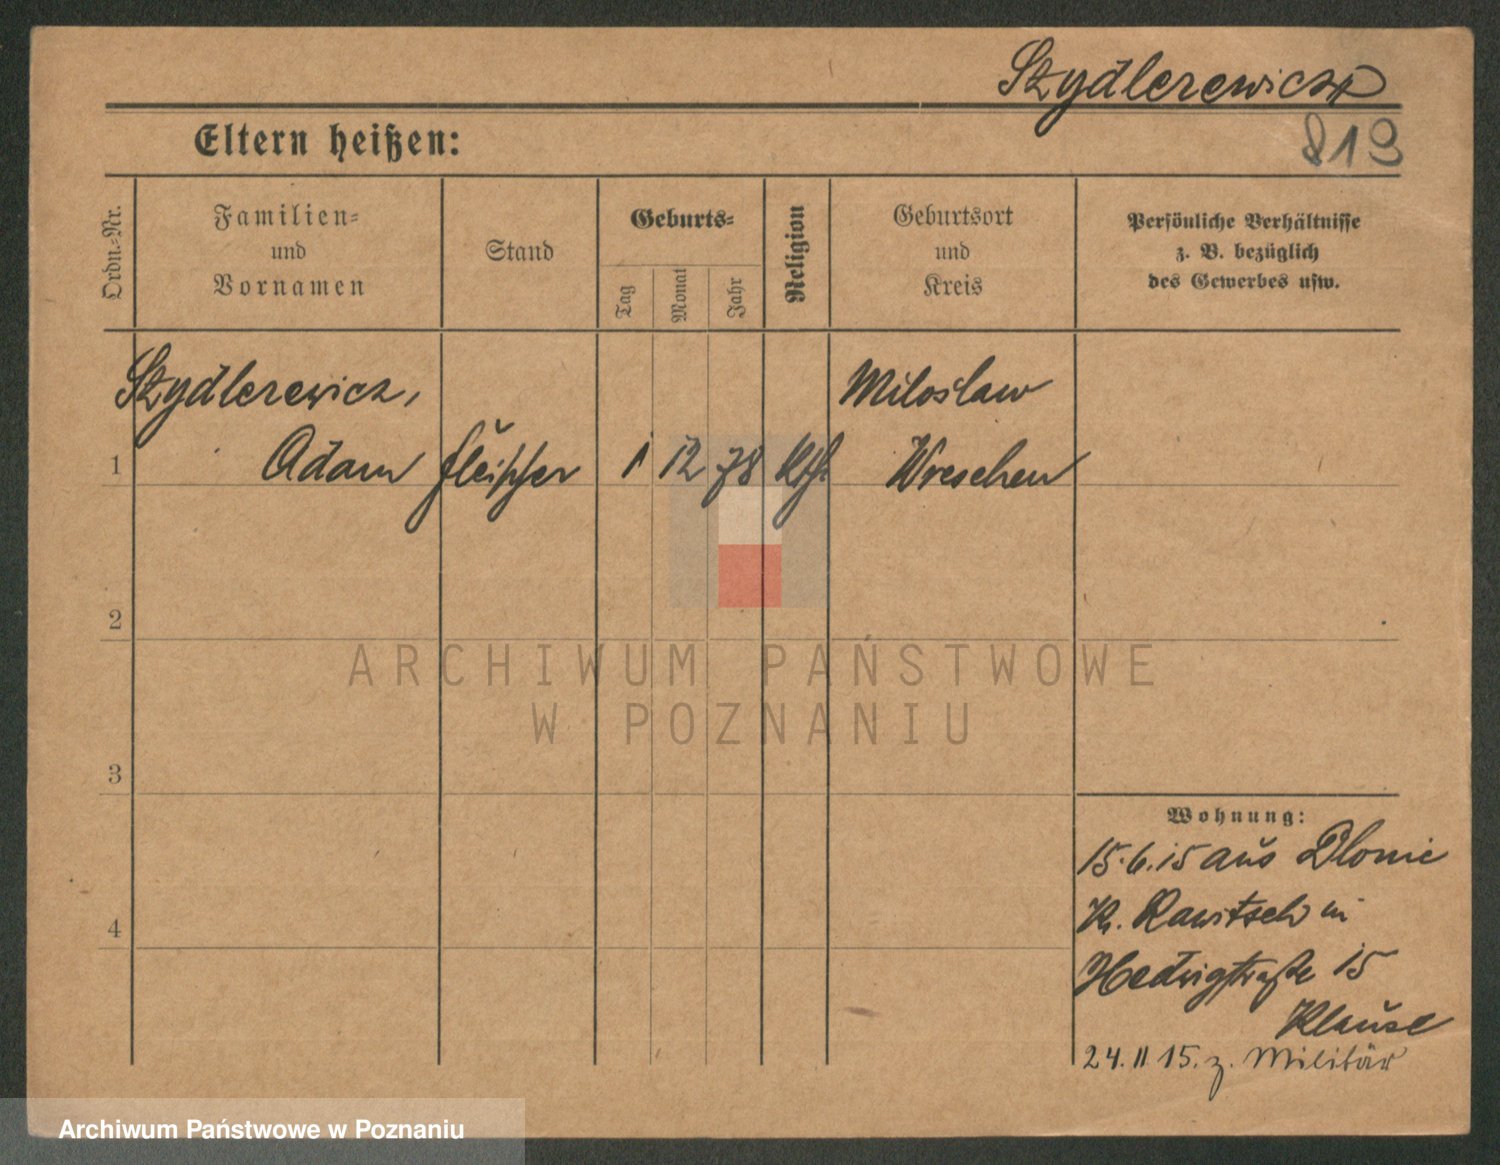 Szydlerewicz
819
Eltern heißen:
Ordn.-Nr.
Familien-
und
Vornamen
Stand
Geburts-
Tag
Monat
Jahr
Religion
Geburtsort
und
Kreis
Persönliche Verhältnisse
z. B. bezüglich
des Gewerbes usw.
Szydlerewicz,
Miloslaw
1 Adam Fleischer 1 12 78 kth. Wreschen
2
3
4
ARCHIWUM PAŃSTWOWE
W POZNANIU
Wohnung:
15.6.15 aus Dlonie
Kr. Rawitsch in
Hedwigstraße 15
Klause
24. 11 15. z. Militär
Archiwum Państwowe w Poznaniu